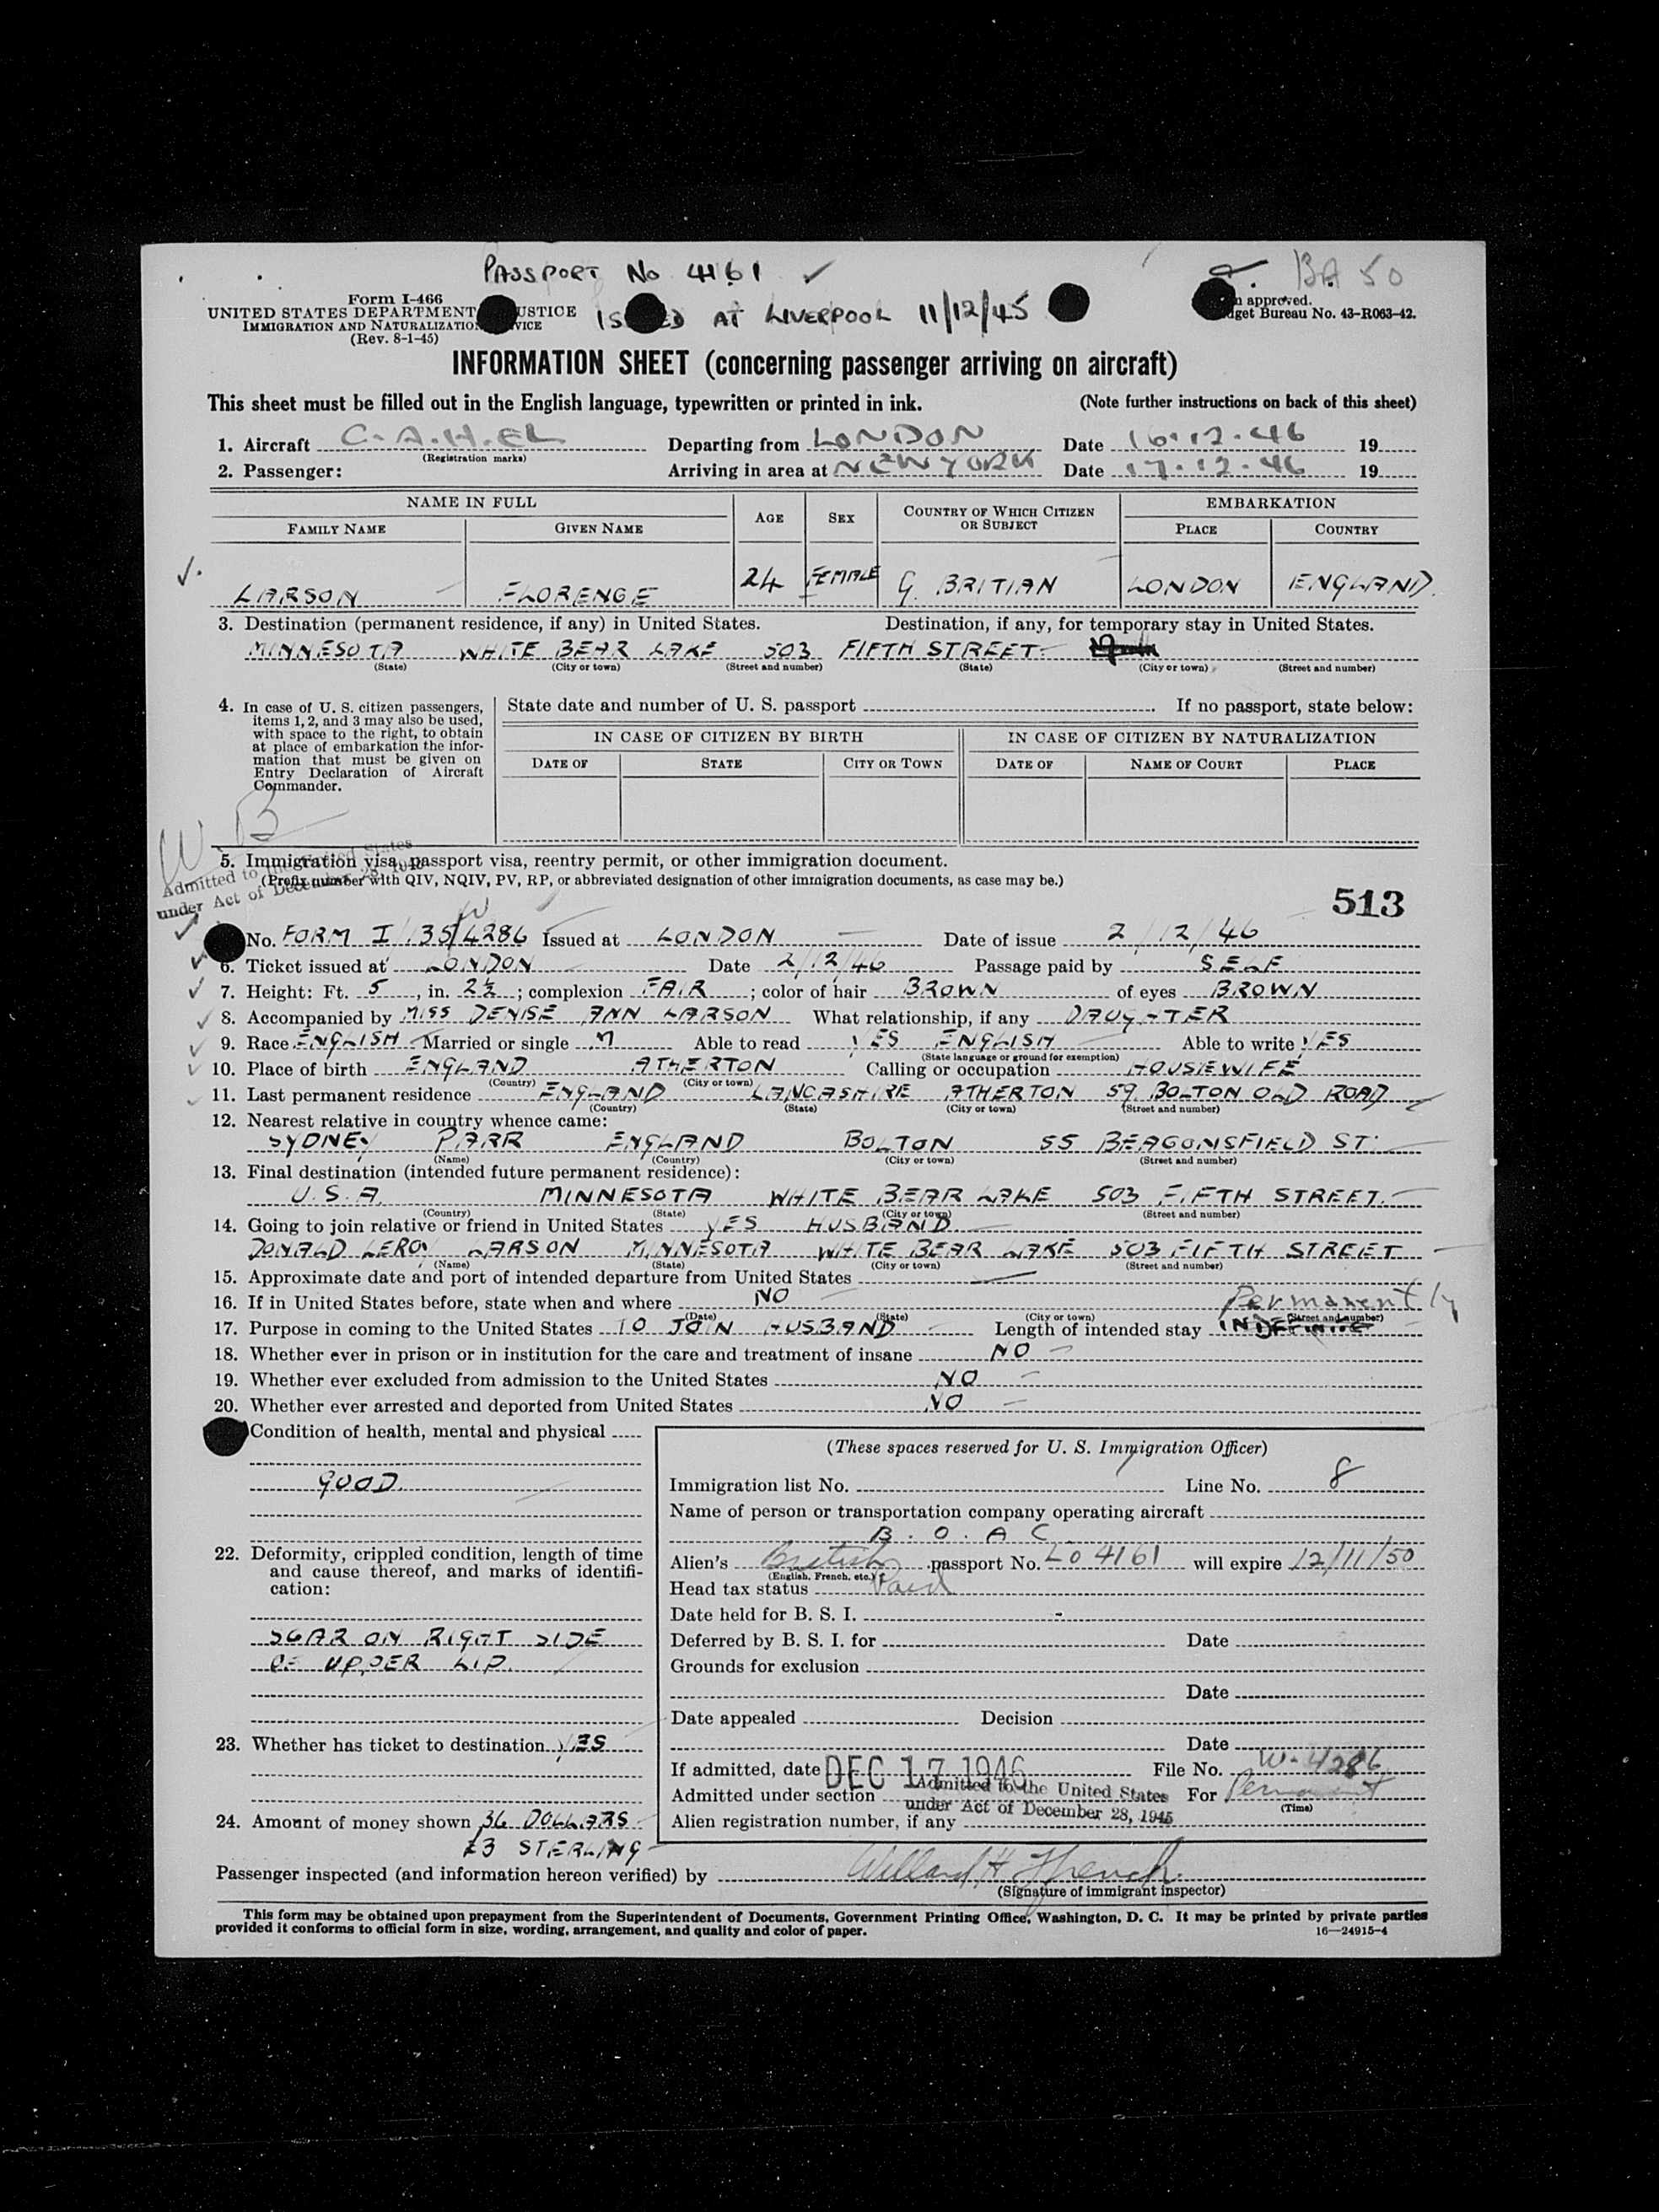 PASSPORT No 4161 ✓
BA 50
Form I-466
UNITED STATES DEPARTMENT USTICE
IMMIGRATION AND NATURALIZATION VICE
(Rev. 8-1-45)
IS ED AT LIVERPOOL 11/12/45
approved.
get Bureau No. 43-R063-42.
INFORMATION SHEET (concerning passenger arriving on aircraft)
This sheet must be filled out in the English language, typewritten or printed in ink. (Note further instructions on back of this sheet)
1. Aircraft G.A.H.EL Departing from LONDON Date 16.12.46 19
(Registration marks)
2. Passenger: Arriving in area at NEW YORK Date 17.12.46 19
NAME IN FULL AGE SEX COUNTRY OF WHICH CITIZEN OR SUBJECT EMBARKATION
FAMILY NAME GIVEN NAME PLACE COUNTRY
LARSON FLORENCE 24 FEMALE G. BRITIAN LONDON ENGLAND.
3. Destination (permanent residence, if any) in United States. Destination, if any, for temporary stay in United States.
MINNESOTA WHITE BEAR LAKE 503 FIFTH STREET.
(State) (City or town) (Street and number) (State) (City or town) (Street and number)
4. In case of U. S. citizen passengers, items 1, 2, and 3 may also be used, with space to the right, to obtain at place of embarkation the information that must be given on Entry Declaration of Aircraft Commander.
State date and number of U. S. passport . If no passport, state below:
IN CASE OF CITIZEN BY BIRTH IN CASE OF CITIZEN BY NATURALIZATION
DATE OF STATE CITY OR TOWN DATE OF NAME OF COURT PLACE
W B
Admitted to the United States
under Act of December 28, 1945
5. Immigration visa, passport visa, reentry permit, or other immigration document.
(Prefix number with QIV, NQIV, PV, RP, or abbreviated designation of other immigration documents, as case may be.)
513
No. FORM I 135/W4286 Issued at LONDON Date of issue 2/12/46
6. Ticket issued at LONDON Date 2/12/46 Passage paid by SELF
7. Height: Ft. 5, in. 2½; complexion FAIR; color of hair BROWN of eyes BROWN
8. Accompanied by MISS DENISE ANN LARSON What relationship, if any DAUGHTER
9. Race ENGLISH Married or single M Able to read YES ENGLISH Able to write YES
(State language or ground for exemption)
10. Place of birth ENGLAND ATHERTON Calling or occupation HOUSIEWIFE
(Country) (City or town)
11. Last permanent residence ENGLAND LANCASHIRE ATHERTON 59 BOLTON OLD ROAD
(Country) (State) (City or town) (Street and number)
12. Nearest relative in country whence came:
SYDNEY PARR ENGLAND BOLTON 55 BEACONSFIELD ST.
(Name) (Country) (City or town) (Street and number)
13. Final destination (intended future permanent residence):
U.S.A. MINNESOTA WHITE BEAR LAKE 503 FIFTH STREET.
(Country) (State) (City or town) (Street and number)
14. Going to join relative or friend in United States YES HUSBAND
DONALD LEROY LARSON MINNESOTA WHITE BEAR LAKE 503 FIFTH STREET
(Name) (State) (City or town) (Street and number)
15. Approximate date and port of intended departure from United States —
16. If in United States before, state when and where NO
(Date) (State) (City or town) (Street and number)
Permanently
17. Purpose in coming to the United States TO JOIN HUSBAND Length of intended stay INDEFINITE
18. Whether ever in prison or in institution for the care and treatment of insane NO
19. Whether ever excluded from admission to the United States NO
20. Whether ever arrested and deported from United States NO
Condition of health, mental and physical
GOOD.
22. Deformity, crippled condition, length of time and cause thereof, and marks of identification:
SCAR ON RIGHT SIDE
OF UPPER LIP.
23. Whether has ticket to destination YES
24. Amount of money shown 36 DOLLARS
£3 STERLING
(These spaces reserved for U. S. Immigration Officer)
Immigration list No. Line No. 8
Name of person or transportation company operating aircraft
B.O.A.C
Alien's British passport No. LO 4161 will expire 12/11/50
(English, French, etc.)
Head tax status Paid
Date held for B. S. I. -
Deferred by B. S. I. for Date
Grounds for exclusion
Date
Date appealed Decision
Date
If admitted, date DEC 17 1946 File No. W-4286
Admitted under section Admitted to the United States For Permanent
under Act of December 28, 1945
(Time)
Alien registration number, if any
Passenger inspected (and information hereon verified) by Willard H French
(Signature of immigrant inspector)
This form may be obtained upon prepayment from the Superintendent of Documents, Government Printing Office, Washington, D. C. It may be printed by private parties
provided it conforms to official form in size, wording, arrangement, and quality and color of paper. 16—24915-4